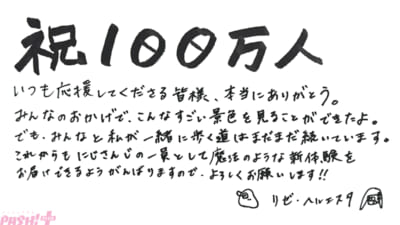 祝100万人
いつも応援してくださる皆様、本当にありがとう。
みんなのおかげで、こんなすごい景色を見ることができたよ。
でも、みんなと私が一緒に歩く道はまだまだ続いています。
これからもにじさんじの一員として魔法のような新体験を
お届けできるようがんばりますので、よろしくお願いします!!
リゼ・ヘルエスタ
PASH!+